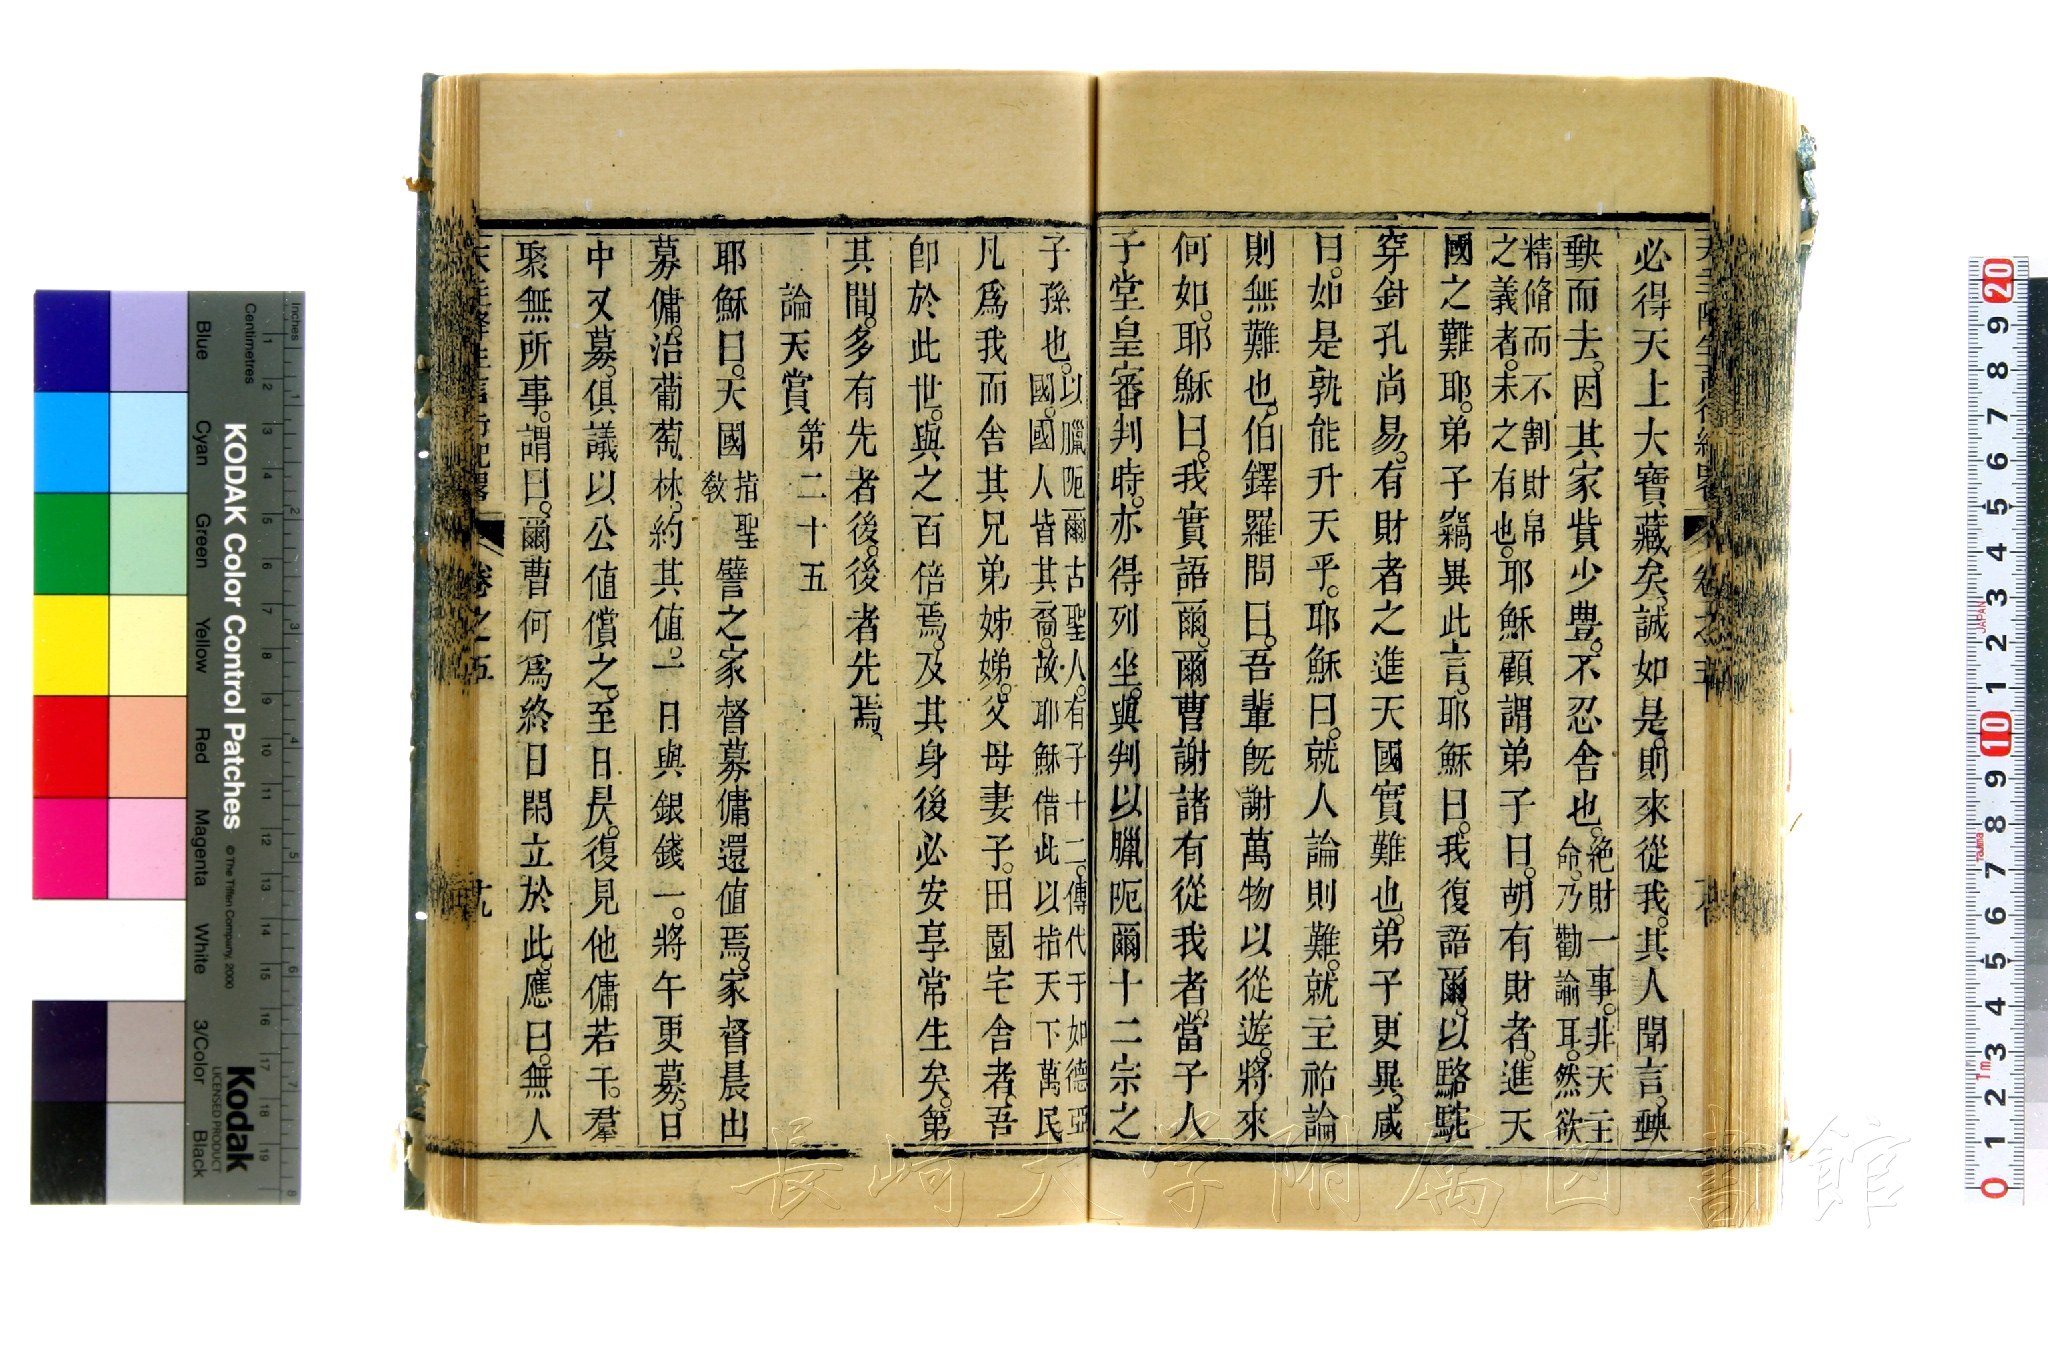 必得天上大寶藏矣。誠如是。則來從我。其人聞言。軮
軮而去。因其家貲少豊。不忍舍也。絶財一事。非天主命。乃勸論耳。然欲
精脩而不割財帛之義者。未之有也。耶穌顧謂弟子曰。胡有財者。進天
國之難耶。弟子竊異此言。耶穌曰。我復語爾。以駱駝
穿針孔尚易。有財者之進天國實難也。弟子更異。咸
曰。如是孰能升天乎。耶穌曰。就人論則難。就主祐論
則無難也。伯鐸羅問曰。吾輩旣謝萬物以從遊。將來
何如。耶穌曰。我實語爾。爾曹謝諸有從我者。當子人
子堂皇審判時。亦得列坐。與判以臘阨爾十二宗之
子孫也。以臘阨爾古聖人。有子十二。傳代于如德亞國。國人皆其裔。故耶穌借此以指天下萬民
凡爲我而舍其兄弟姊娣。父母妻子。田園宅舍者。吾
卽於此世。與之百倍焉。及其身後必安享常生矣。第
其間。多有先者後。後者先焉。
論天賞第二十五
耶穌曰。天國指聖敎譬之家督募傭還値焉。家督晨出
募傭。治葡萄林。約其値。一日與銀錢一。將午更募。日
中又募。俱議以公値償之。至日昃。復見他傭若干。羣
聚無所事。謂曰。爾曹何爲終日閑立於此。應曰。無人
卷之五
十九
長崎大学附属図書館
KODAK Color Control Patches
© The Tiffen Company, 2000
Kodak
LICENSED PRODUCT
Inches
Centimetres
Blue
Cyan
Green
Yellow
Red
Magenta
White
3/Color
Black
JAPAN